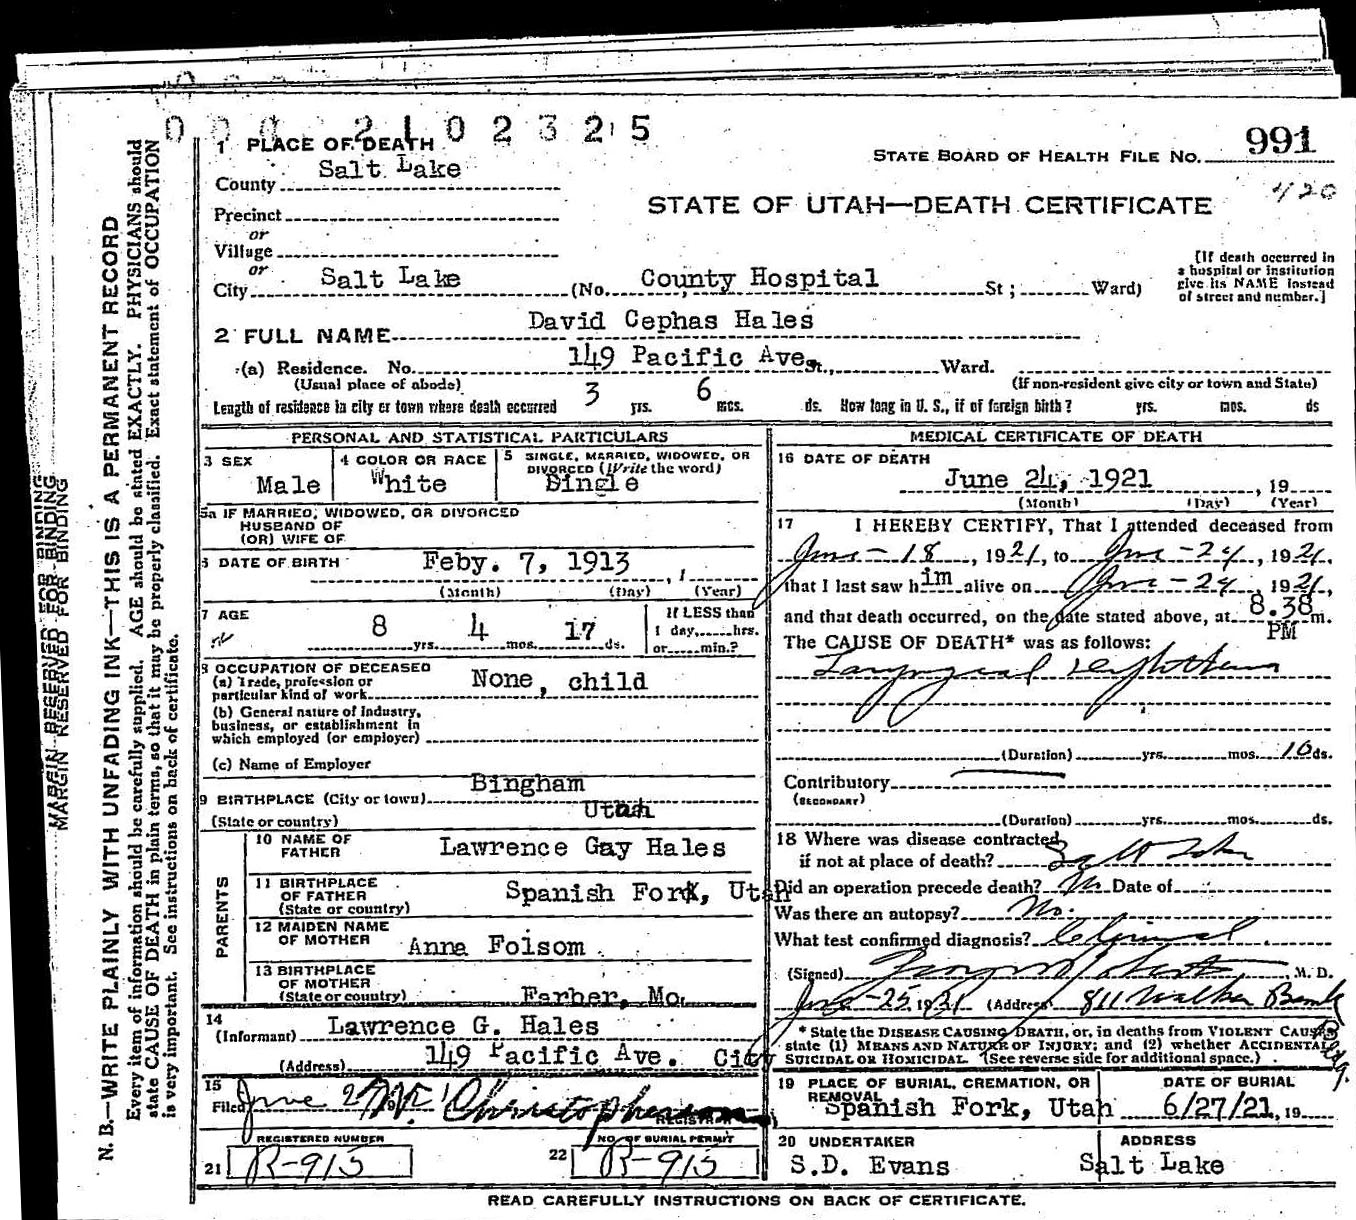 0 0 0 2 1 0 2 3 2 5
991
STATE BOARD OF HEALTH FILE NO.
420
STATE OF UTAH—DEATH CERTIFICATE
1 PLACE OF DEATH
County Salt Lake
Precinct
or
Village
or
City Salt Lake (No. County Hospital St; Ward)
[If death occurred in
a hospital or institution
give its NAME instead
of street and number.]
2 FULL NAME David Cephas Hales
(a) Residence. No. 149 Pacific Ave. St., Ward.
(Usual place of abode) (If non-resident give city or town and State)
Length of residence in city or town where death occurred 3 yrs. 6 mos. ds. How long in U. S., if of foreign birth? yrs. mos. ds
PERSONAL AND STATISTICAL PARTICULARS
3 SEX Male
4 COLOR OR RACE White
5 SINGLE, MARRIED, WIDOWED, OR
DIVORCED (Write the word)
Single
5a IF MARRIED, WIDOWED, OR DIVORCED
HUSBAND OF
(OR) WIFE OF
6 DATE OF BIRTH Feby. 7, 1913, 1
(Month) (Day) (Year)
7 AGE 8 yrs. 4 mos. 17 ds.
If LESS than
1 day,......hrs.
or......min.?
8 OCCUPATION OF DECEASED
(a) Trade, profession or
particular kind of work None, child
(b) General nature of industry,
business, or establishment in
which employed (or employer)
(c) Name of Employer
9 BIRTHPLACE (City or town) Bingham
(State or country) Utah
PARENTS
10 NAME OF
FATHER Lawrence Gay Hales
11 BIRTHPLACE
OF FATHER
(State or country) Spanish Fork, Utah
12 MAIDEN NAME
OF MOTHER Anna Folsom
13 BIRTHPLACE
OF MOTHER
(State or country) Farber, Mo.
14
(Informant) Lawrence G. Hales
(Address) 149 Pacific Ave. City
15
Filed June 27 Christopherson
REGISTRAR
REGISTERED NUMBER
21 R-915
NO. OF BURIAL PERMIT
22 R-915
MEDICAL CERTIFICATE OF DEATH
16 DATE OF DEATH
June 24, 1921, 19
(Month) (Day) (Year)
17 I HEREBY CERTIFY, That I attended deceased from
June-18, 1921, to June-24, 1921,
that I last saw him alive on June-24, 1921,
and that death occurred, on the date stated above, at 8.38 m.
PM
The CAUSE OF DEATH* was as follows:
Laryngeal diphtheria
(Duration) yrs. mos. 10 ds.
Contributory
(SECONDARY)
(Duration) yrs. mos. ds.
18 Where was disease contracted
if not at place of death? Salt Lake
Did an operation precede death? No Date of
Was there an autopsy? No.
What test confirmed diagnosis? Clinical
(Signed) M. D.
June-25 1921 (Address) 811 Walker Bank
Bldg.
* State the DISEASE CAUSING DEATH, or, in deaths from VIOLENT CAUSES
state (1) MEANS AND NATURE OF INJURY; and (2) whether ACCIDENTAL
SUICIDAL OR HOMICIDAL. (See reverse side for additional space.)
19 PLACE OF BURIAL, CREMATION, OR
REMOVAL
Spanish Fork, Utah
DATE OF BURIAL
6/27/21, 19
20 UNDERTAKER
S.D. Evans
ADDRESS
Salt Lake
READ CAREFULLY INSTRUCTIONS ON BACK OF CERTIFICATE.
MARGIN RESERVED FOR BINDING
MARGIN RESERVED FOR BINDING
N. B.—WRITE PLAINLY WITH UNFADING INK—THIS IS A PERMANENT RECORD
Every item of information should be carefully supplied. AGE should be stated EXACTLY. PHYSICIANS should
state CAUSE OF DEATH in plain terms, so that it may be properly classified. Exact statement of OCCUPATION
is very important. See instructions on back of certificate.